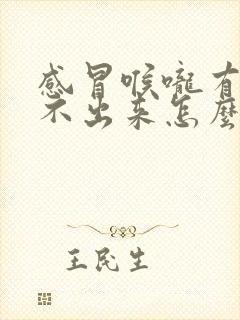 感冒喉嚨有
不出来怎麼
王民生